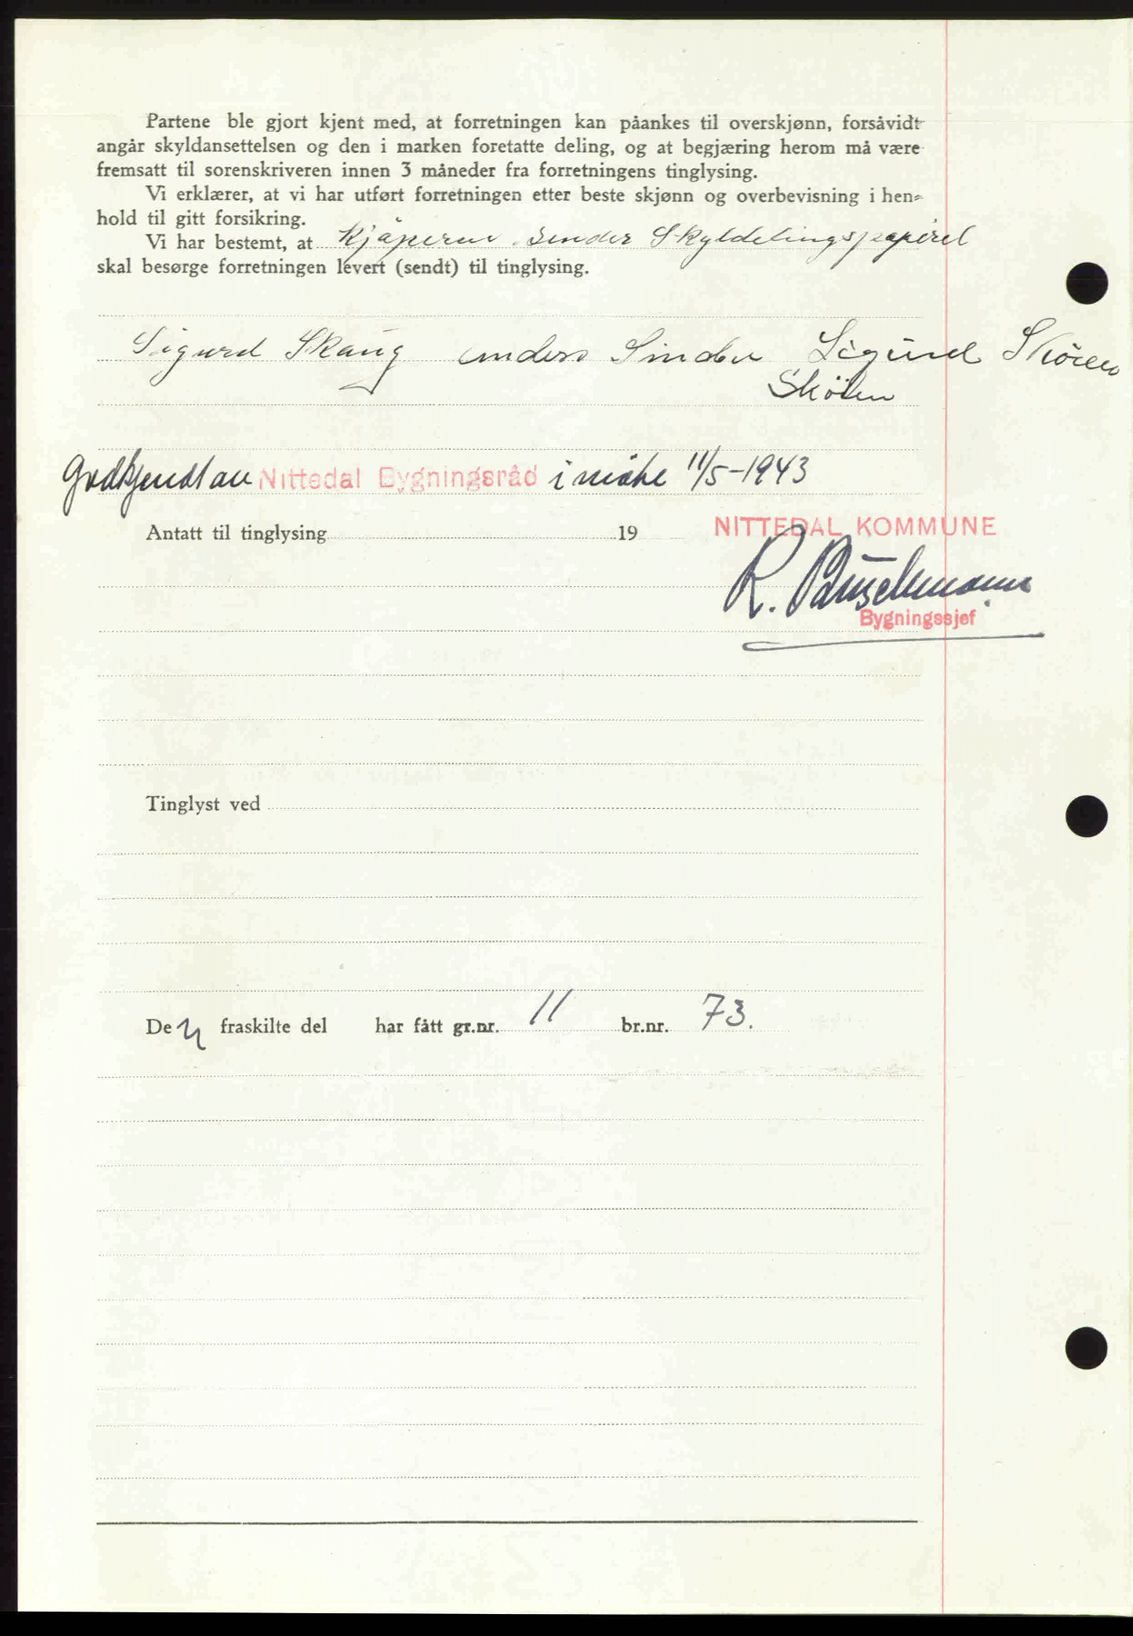 Partene ble gjort kjent med, at forretningen kan påankes til overskjønn, forsåvidt
angår skyldansettelsen og den i marken foretatte deling, og at begjæring herom må være
fremsatt til sorenskriveren innen 3 måneder fra forretningens tinglysing.
Vi erklærer, at vi har utført forretningen etter beste skjønn og overbevisning i hen-
hold til gitt forsikring.
Vi har bestemt, at Kjøperen sender Skyldelingspapiret
skal besørge forretningen levert (sendt) til tinglysing.
Sigurd Skaug Anders Sinder Sigurd Skøien
Skøien
Godkjendt av Nittedal Bygningsråd i møte 11/5-1943
Antatt til tinglysing 19
NITTEDAL KOMMUNE
R.
Bygningssjef
Tinglyst ved
De n fraskilte del har fått gr.nr. 11 br.nr. 73.